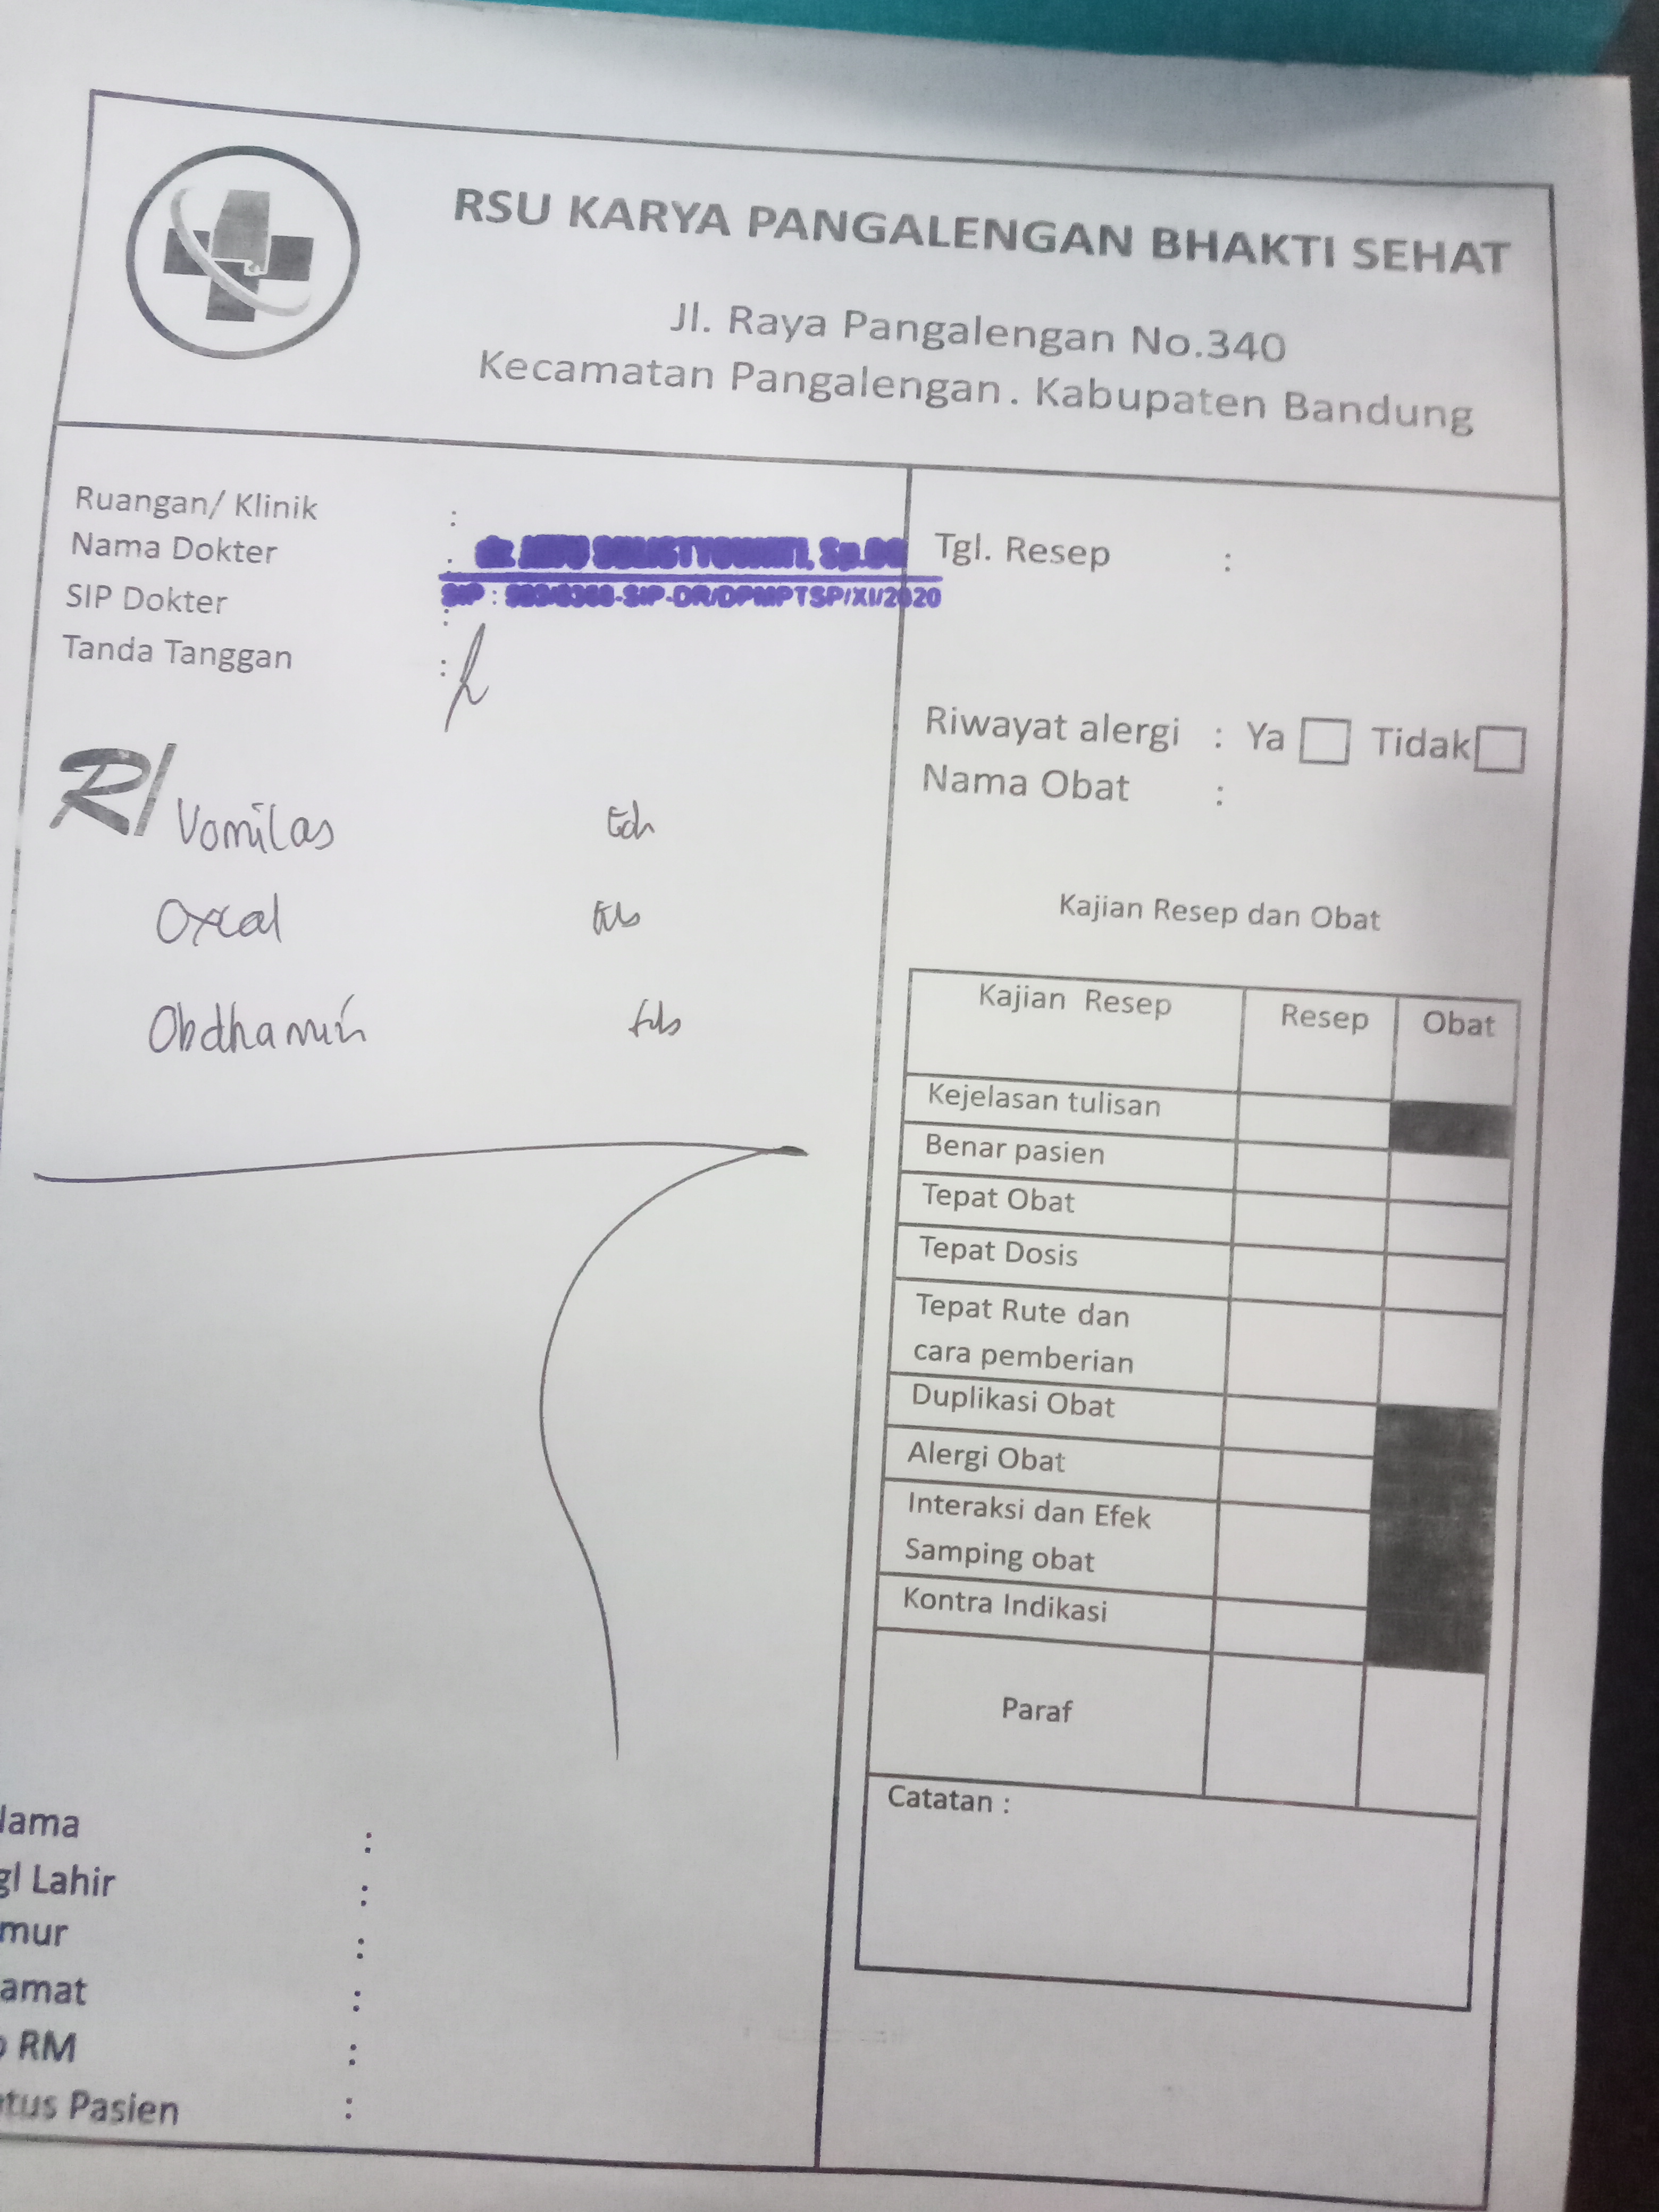 RSU KARYA PANGALENGAN BHAKTI SEHAT
Jl. Raya Pangalengan No.340
Kecamatan Pangalengan. Kabupaten Bandung
Ruangan/ Klinik :
Nama Dokter :
SIP Dokter :
Tanda Tanggan :
SIP-DR/DPMPTSP/XI/2020
R/ Vomilas
Oxcal
Obdhamin
Tgl. Resep :
Riwayat alergi : Ya Tidak
Nama Obat :
Kajian Resep dan Obat
Kajian Resep Resep Obat
Kejelasan tulisan
Benar pasien
Tepat Obat
Tepat Dosis
Tepat Rute dan
cara pemberian
Duplikasi Obat
Alergi Obat
Interaksi dan Efek
Samping obat
Kontra Indikasi
Paraf
Catatan :
ama :
gl Lahir :
mur :
amat :
RM :
tus Pasien :